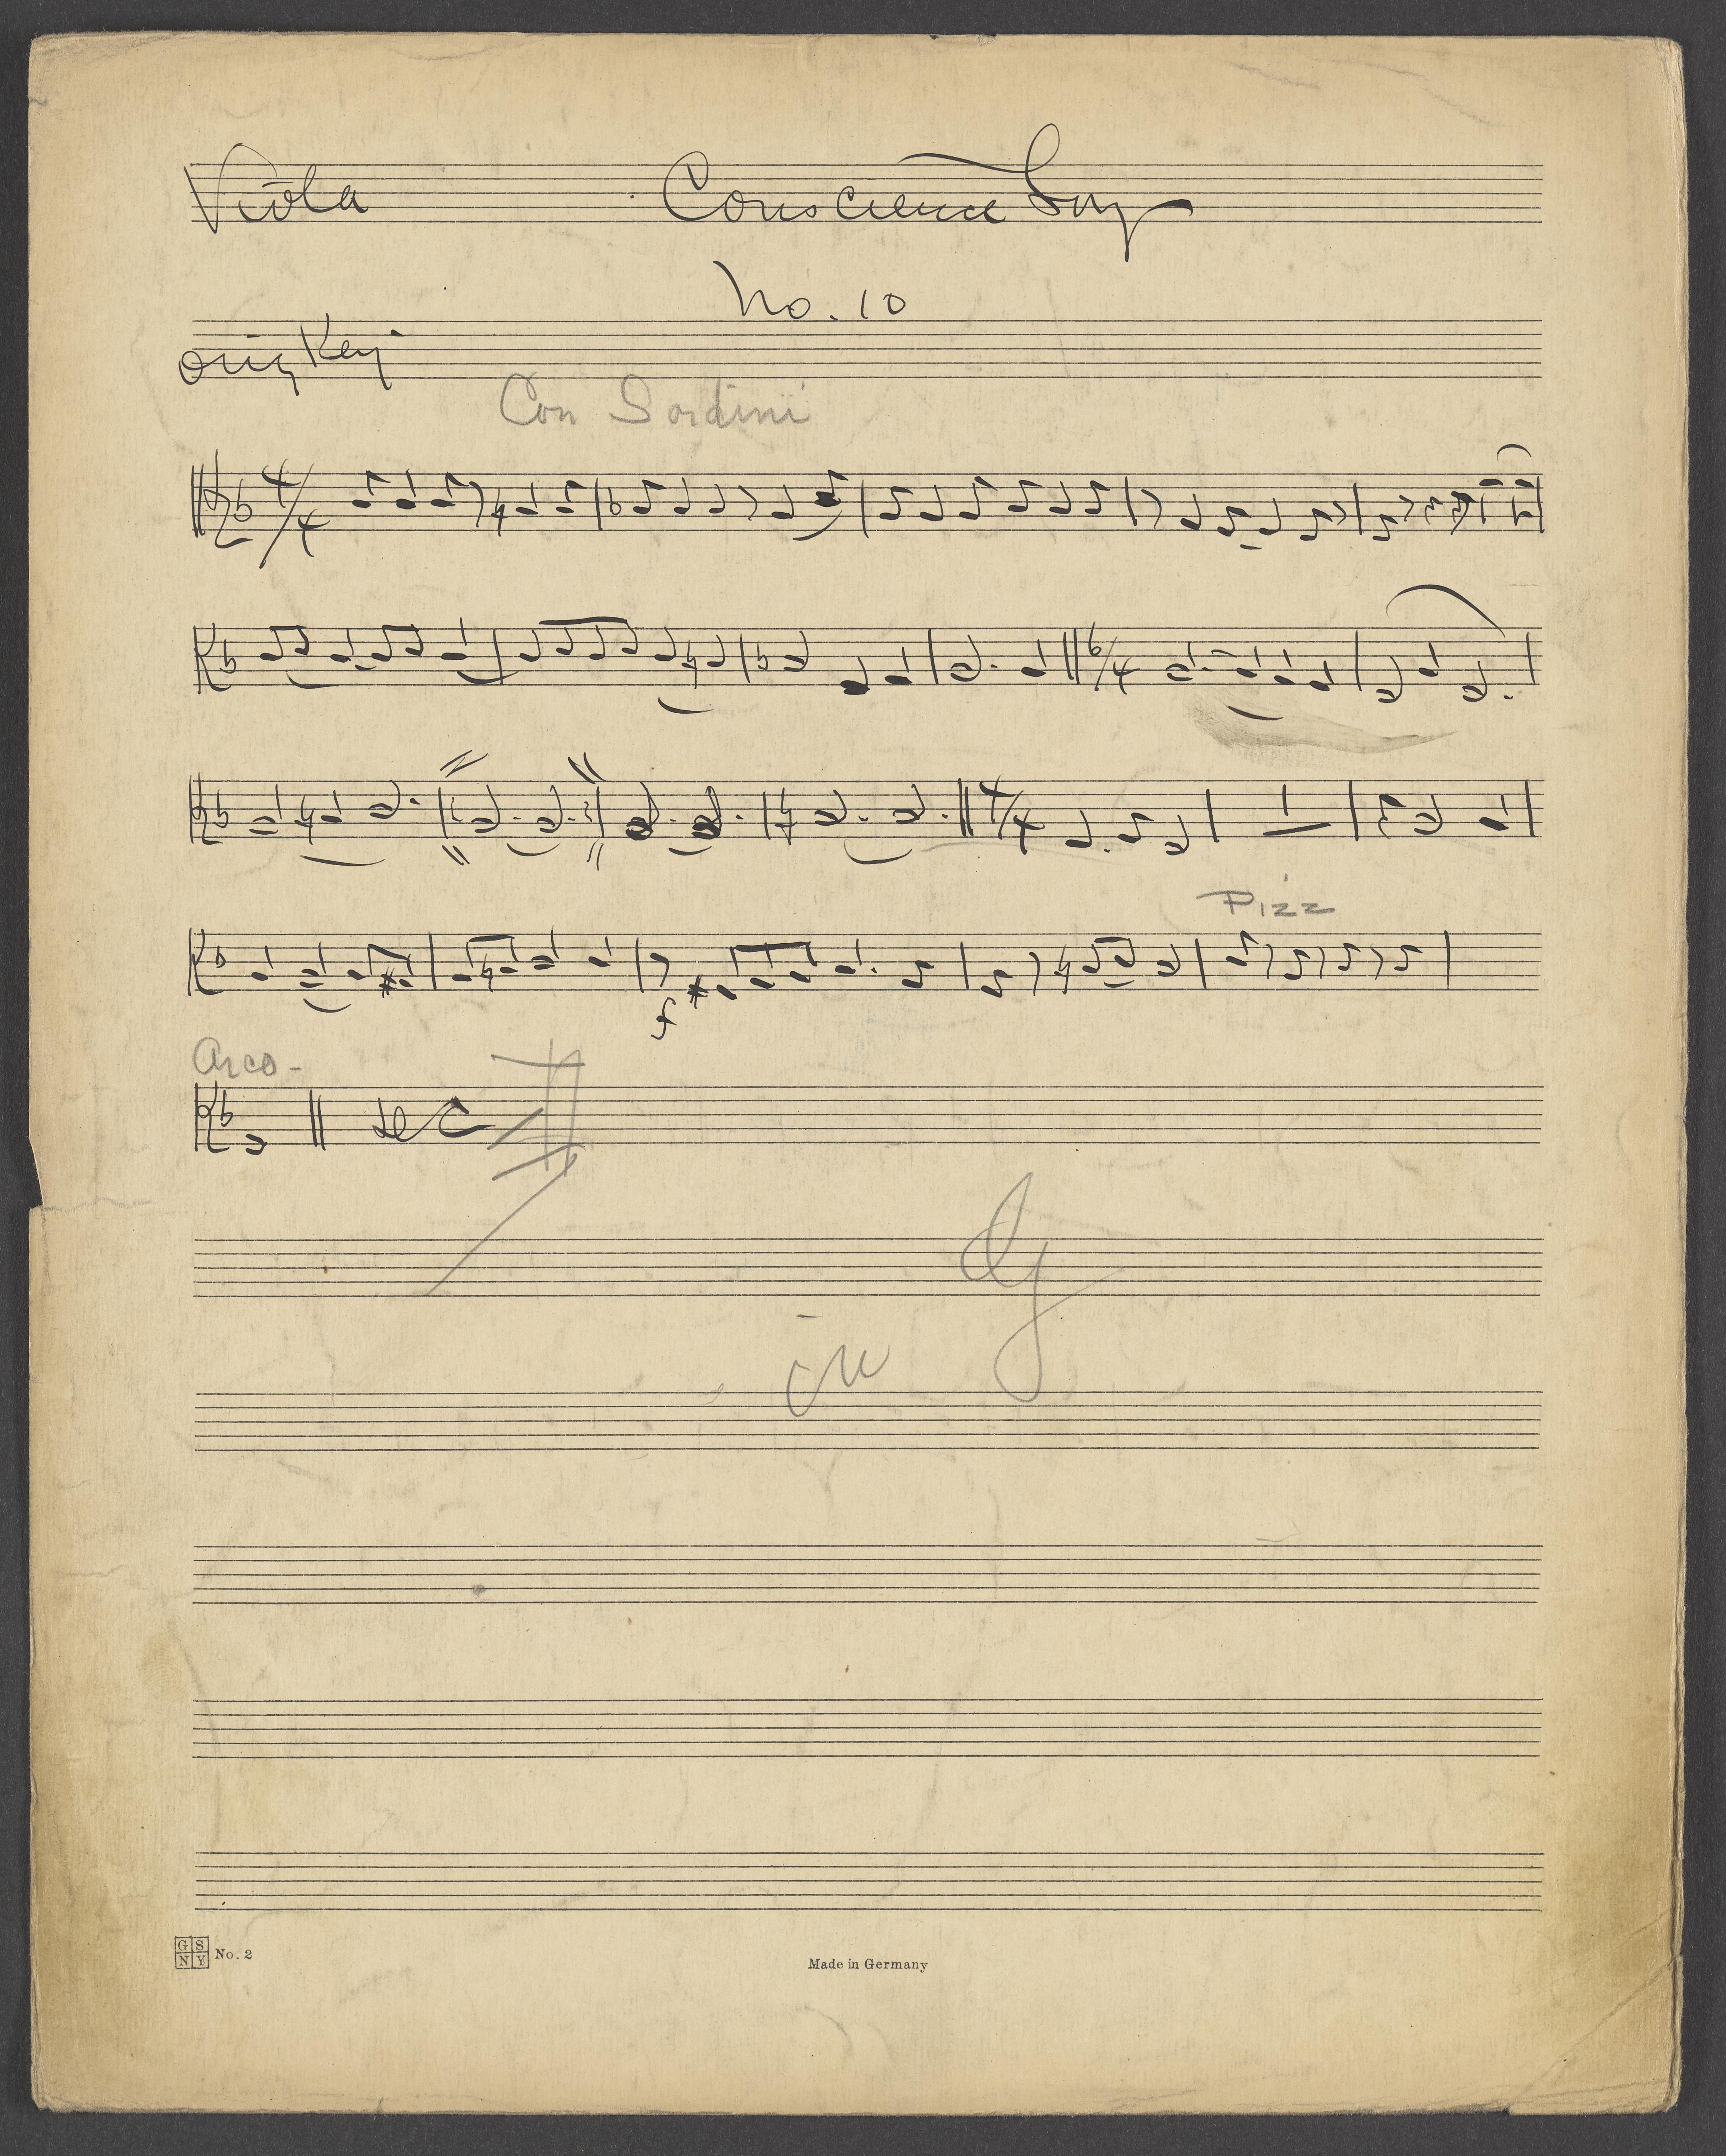 Viola Conscience Song
No. 10
Orig Key
Con Sordini
4/4
6/4
4/4
Pizz
f
Arco -
in G
GS
NY No. 2
Made in Germany